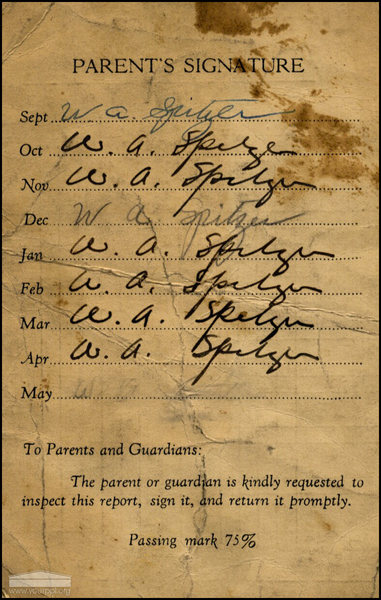 PARENT'S SIGNATURE
Sept W. A. Spitzer
Oct W. A. Spitzer
Nov W. A. Spitzer
Dec W A Spitzer
Jan W. A. Spitzer
Feb W. A. Spitzer
Mar W. A. Spitzer
Apr W. A. Spitzer
May
To Parents and Guardians:
The parent or guardian is kindly requested to
inspect this report, sign it, and return it promptly.
Passing mark 75%